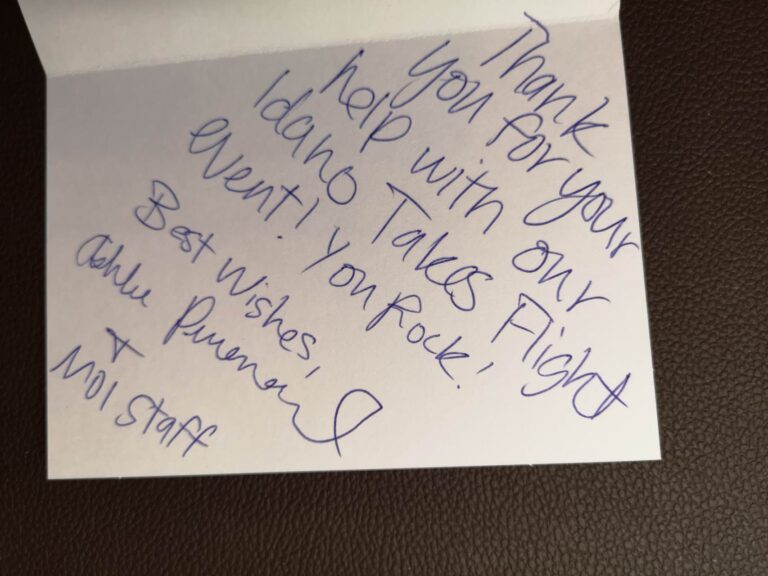 Thank
you for your
help with our
Idaho Takes Flight
event! You Rock!
Best Wishes,
Ashlee
+
MOI Staff